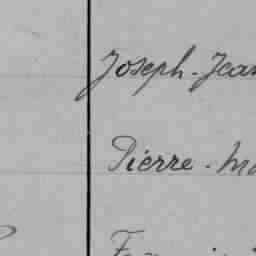 Joseph-Jean
Pierre-Ma